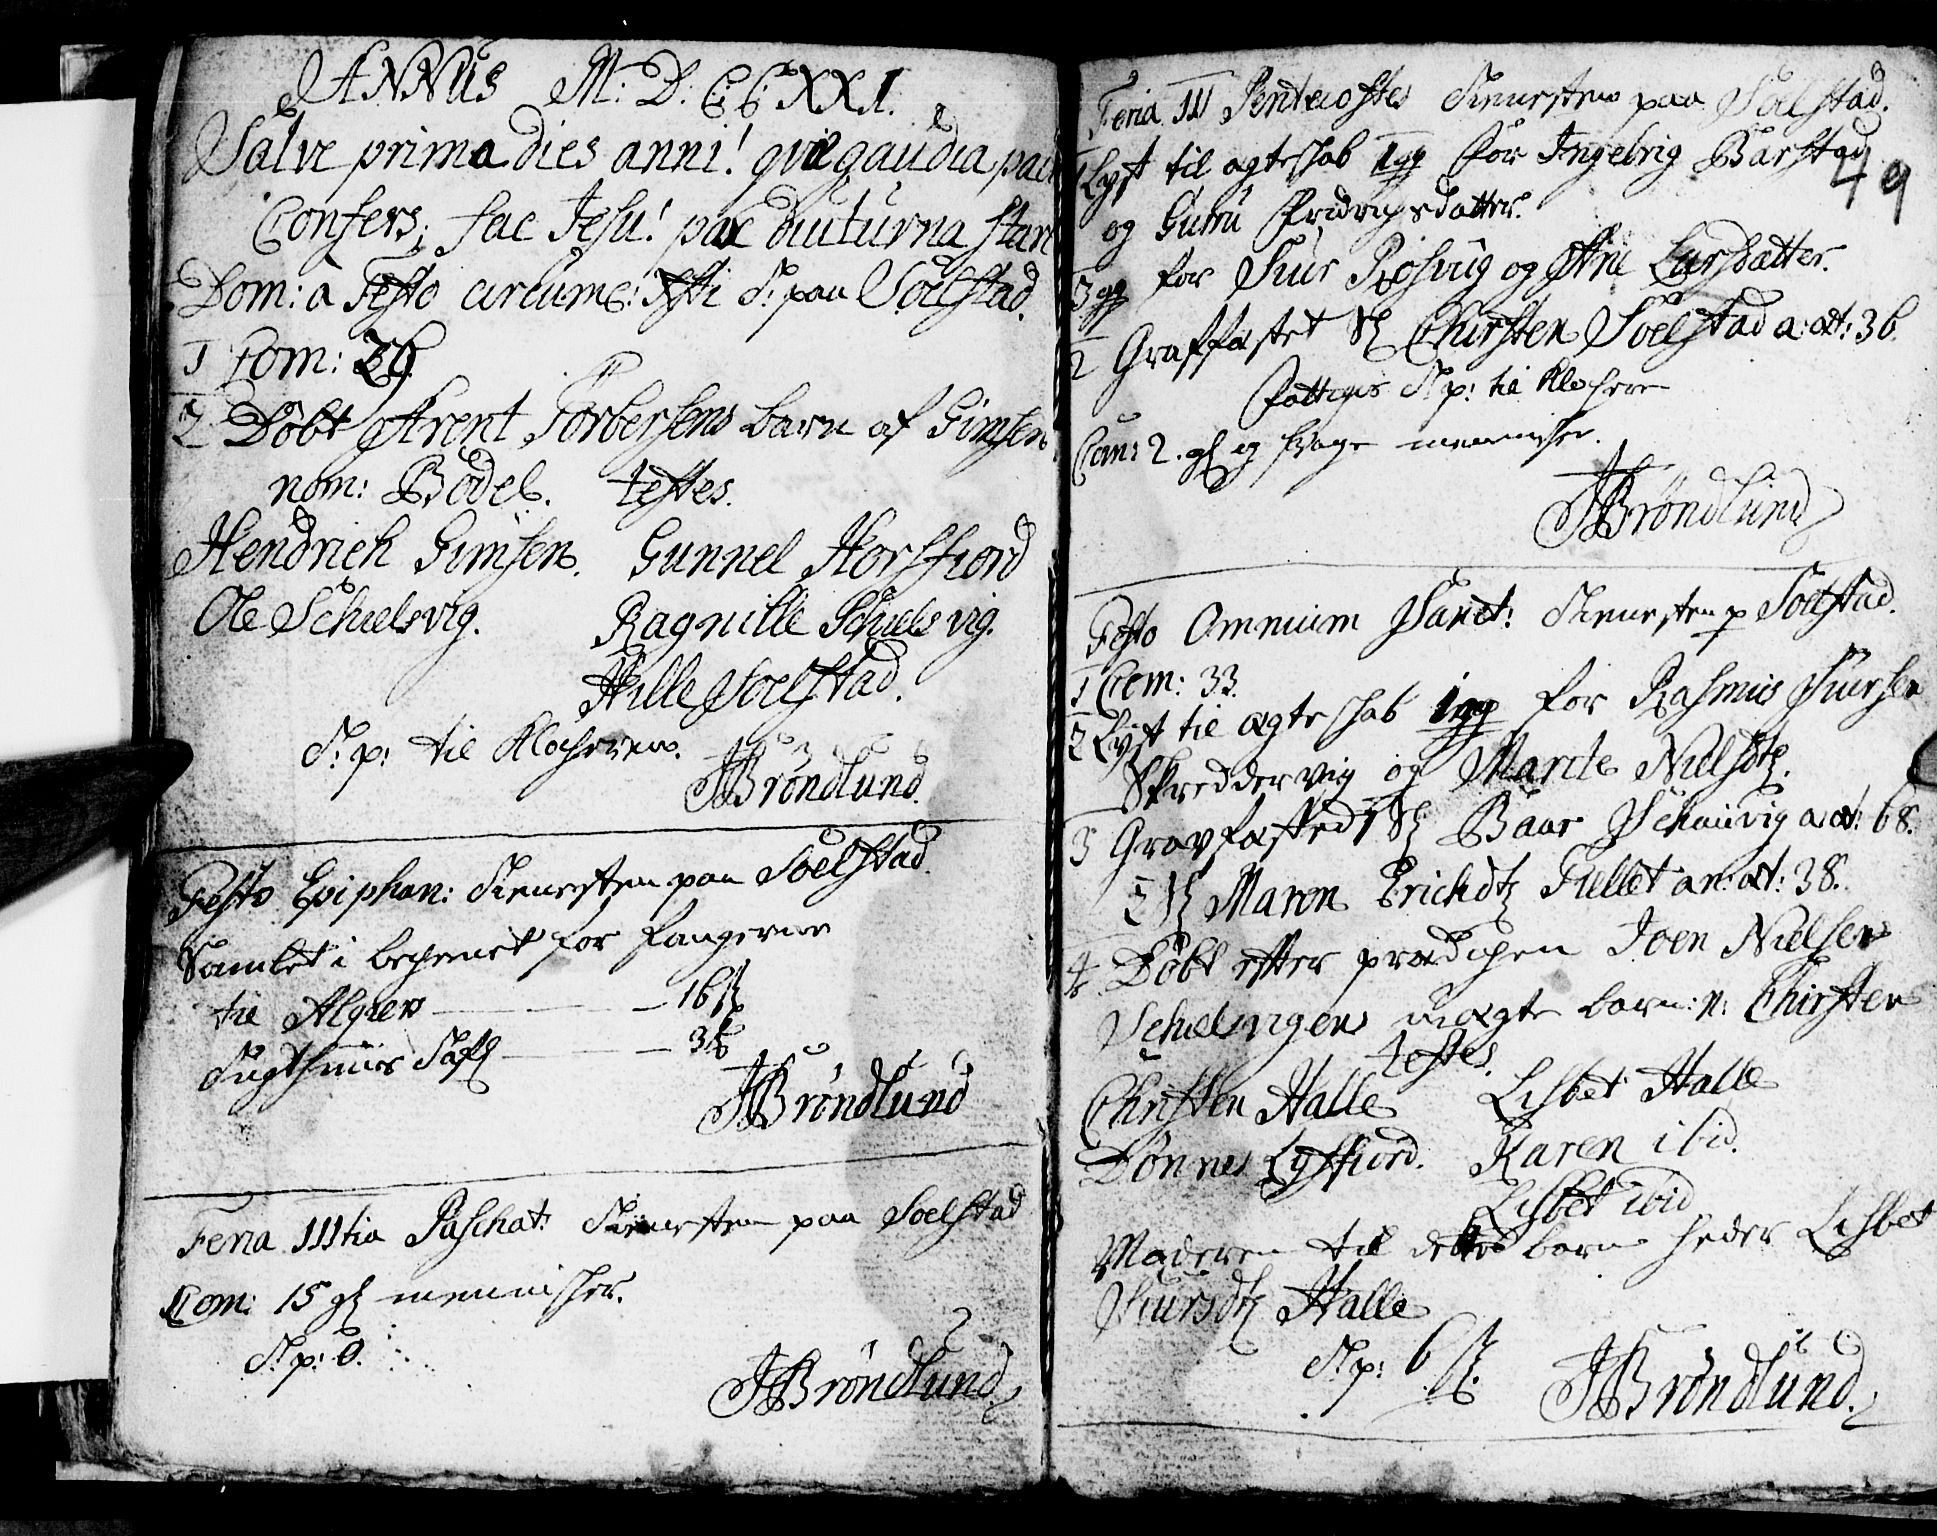 ANNUS M: D: C:C: XXI.
Salve prima dies anni! qvæ gaudia pacis
Confers; fac Jesu! pax diuturna stare
Dom: a Festo circumc: Xsti T: paa Soelstad.
1 Com: 39
2 Döbt Arent Torbersens barn af Gimsen
nom: Bodel. testes.
Hendrich Gimsen. Gunnel Horsfiord
Ole Schielsvig. Ragnille Schielsvig.
Hille Soelstad.
T: p: til Klocheren.
JBröndlund.
Festo Epiphan: Tienesten paa Soelstad.
Samlet i bechenet for fangerne
til Algier — 16 ß
Tugthuus — 3 ß
JBröndlund
Feria IIItia Paschat: Tienesten paa Soelstad
Com: 15 gl mennischer.
T: p: 0.
JBröndlund.
49
Feria III Pentecostes Tienesten paa Soelstad.
1 Lyst til ægteskab 1 gg for Ingebrig Barstad
og Guru Fridrichsdatter.
3 gg for Siur Rosvug og Ane Larsdatter.
2 Graffæstet Sl Christen Soelstad a: æt: 36.
Fattiges T: p: til Klocheren
Com: 2. gl og svage mennischer.
JBröndlund
Festo Omnium Sanct: Tienesten p Soelstad.
1 Com: 33.
2 Lyst til ægteskab 1 gg for Rasmus Siursen
Skreddervig og Marite Nielsdtz.
3 Gravfæsted 1 Sl Baar Schaivig a: æt: 68.
2 Sl Maren Erichdtz Fiellet an: æt: 38.
4 Döbt efter prædichen Joen Nielsen
Schielsvigens uægte barn: n: Christen
testes.
Christen Halle Lisbet Halle
Dönnes Lysfiord. Karen ibid.
Lisbet ibid
Moderen til dette barn heder Lisbet
Siursdtz Halle
T: p: 6 ß.
JBröndlund.